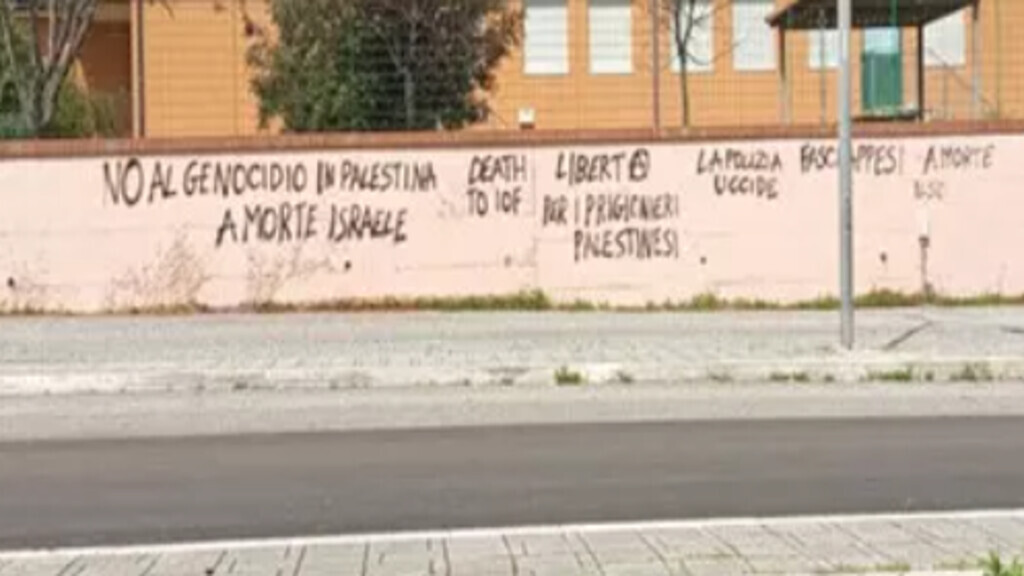 NO AL GENOCIDIO IN PALESTINA
A MORTE ISRAELE
DEATH
TO IOF
LIBERTⒶ
PER I PRIGIONIERI
PALESTINESI
LA POLIZIA
UCCIDE
FASCI APPESI
A MORTE